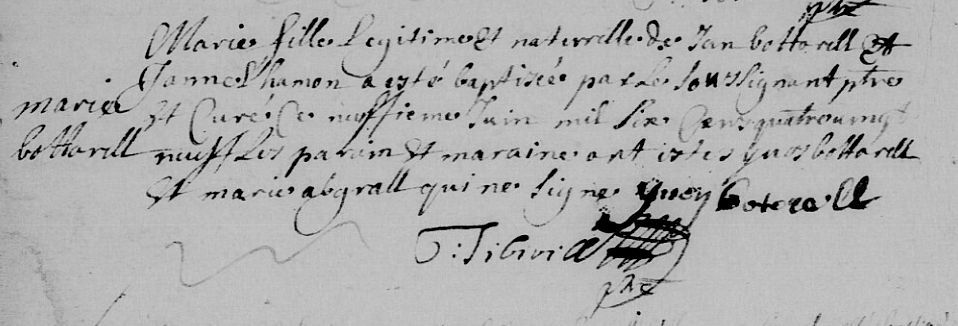 Marie fille Legitime et naturelle de Jan bottorell et
Janne Lhamon a esté baptisée par le soussignant ptre
marie
et Curé Ce neuffieme Juin mil six Cens quatre vingt
bottorell
neuff Les parain et maraine ont estes yves bottorell
et marie abgrall qui ne signe yves botorell
ptre